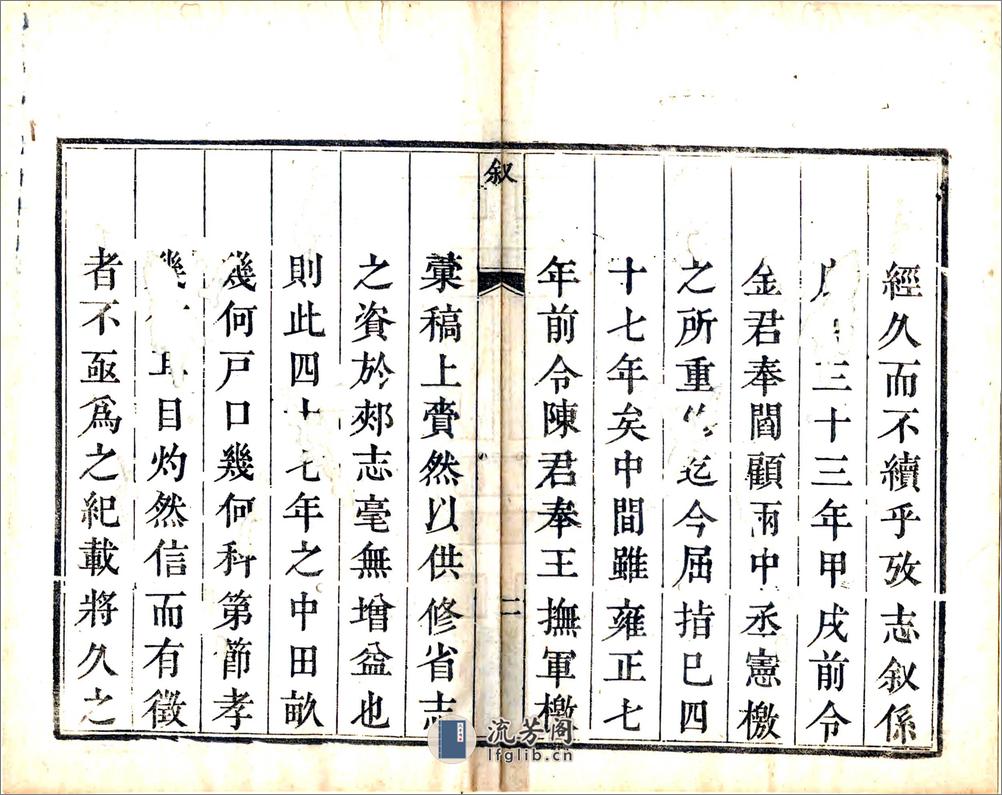 經久而不續乎攷志叙係
三十三年甲戌前令
金君奉閻顧兩中丞憲檄
之所重迄今屈指巳四
十七年矣中間雖雍正七
年前令陳君奉王撫軍檄
叙
二
藁稿上賫然以供修省志
之資於郟志毫無增益也
則此四十七年之中田畝
幾何戸口幾何科第節孝
幾耳目灼然信而有徵
者不亟爲之紀載將久之
流芳阁
lfglib.cn